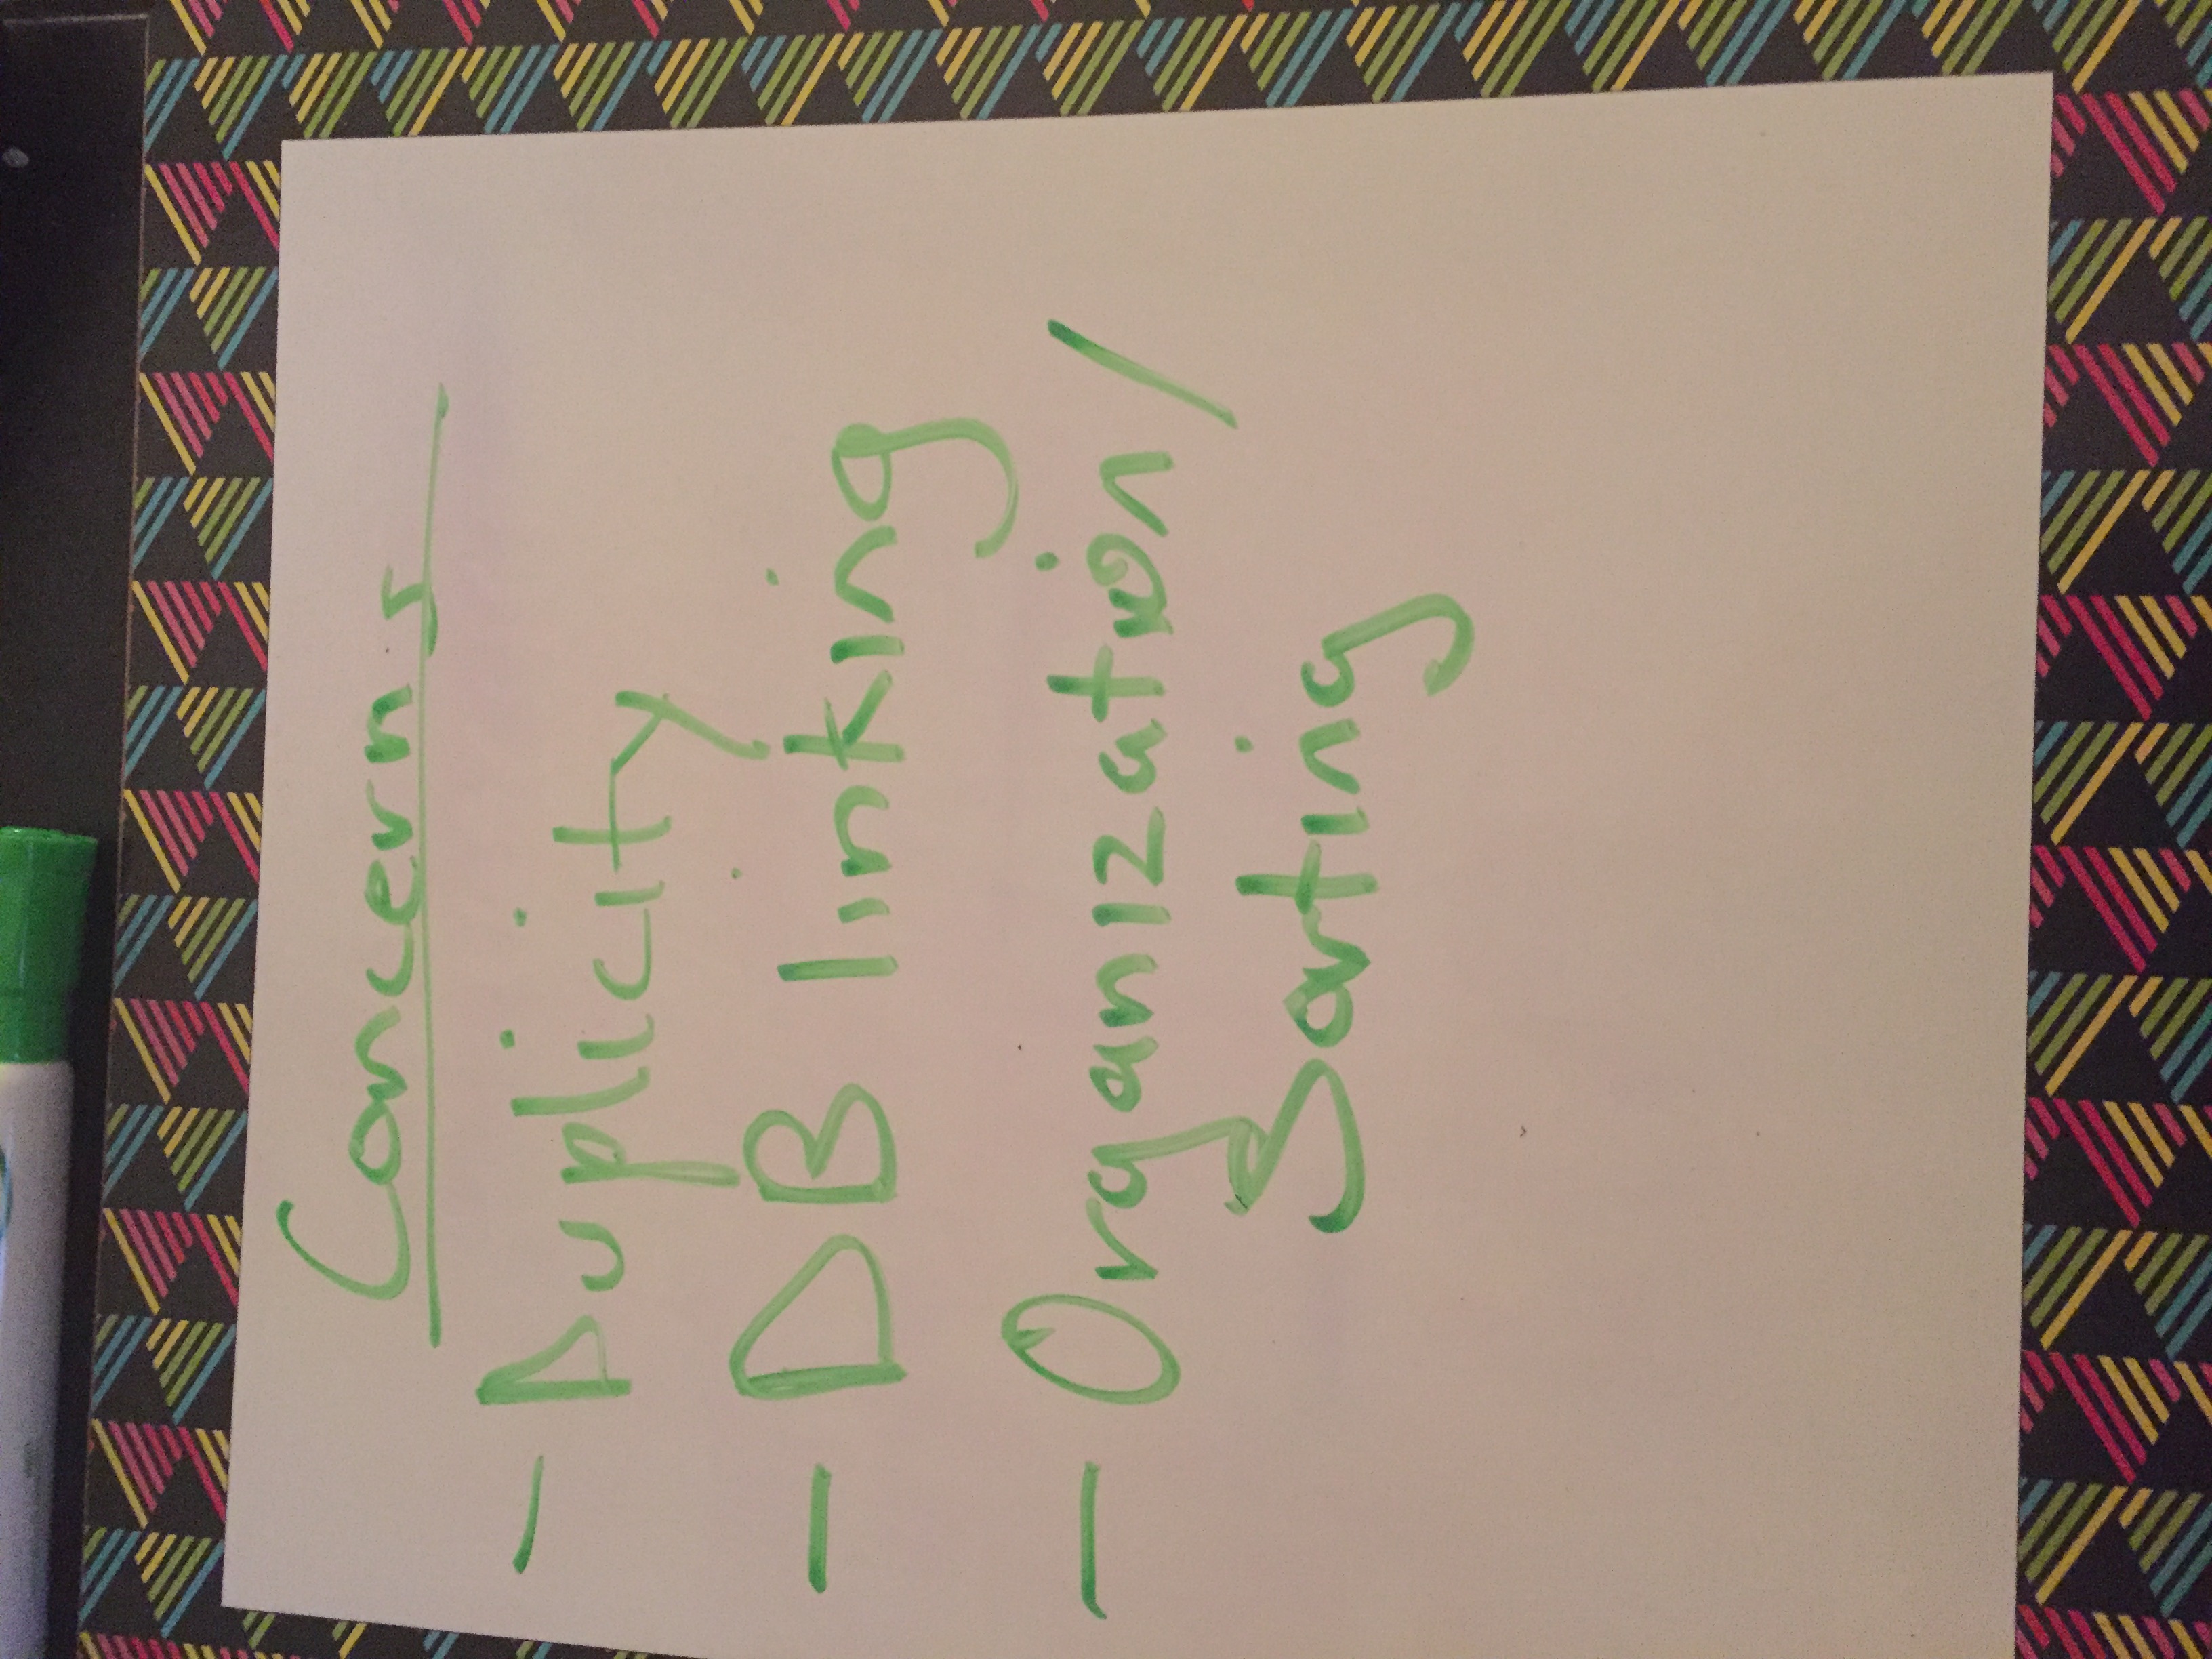 Concerns
- Duplicity
- DB linking
- Organization/
Sorting